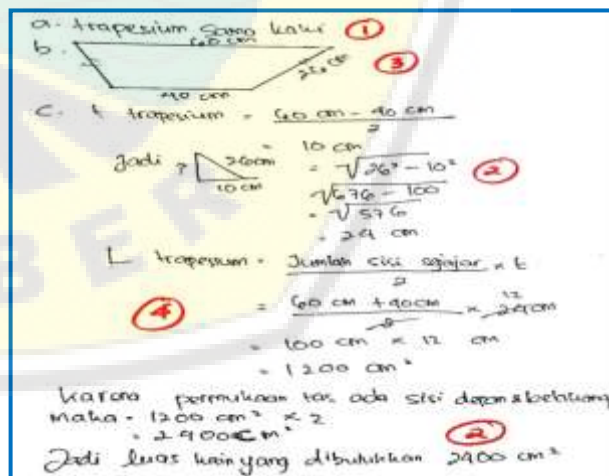 a. trapesium sama kaki ①
b. 60 cm
26 cm ③
40 cm
C. t trapesium = 60 cm - 40 cm
2
= 10 cm
Jadi ? 26cm = √26² - 10² ②
10 cm √676 - 100
= √576
= 24 cm
L trapesium = Jumlah sisi sejajar x t
2
④ = 60 cm + 40cm x 24cm 12
2
= 100 cm x 12 cm
= 1200 cm²
karena permukaan tas ada sisi depan & belakang
Maka = 1200 cm² x 2
= 2400 cm²
②
Jadi luas kain yang dibutuhkan 2400 cm²